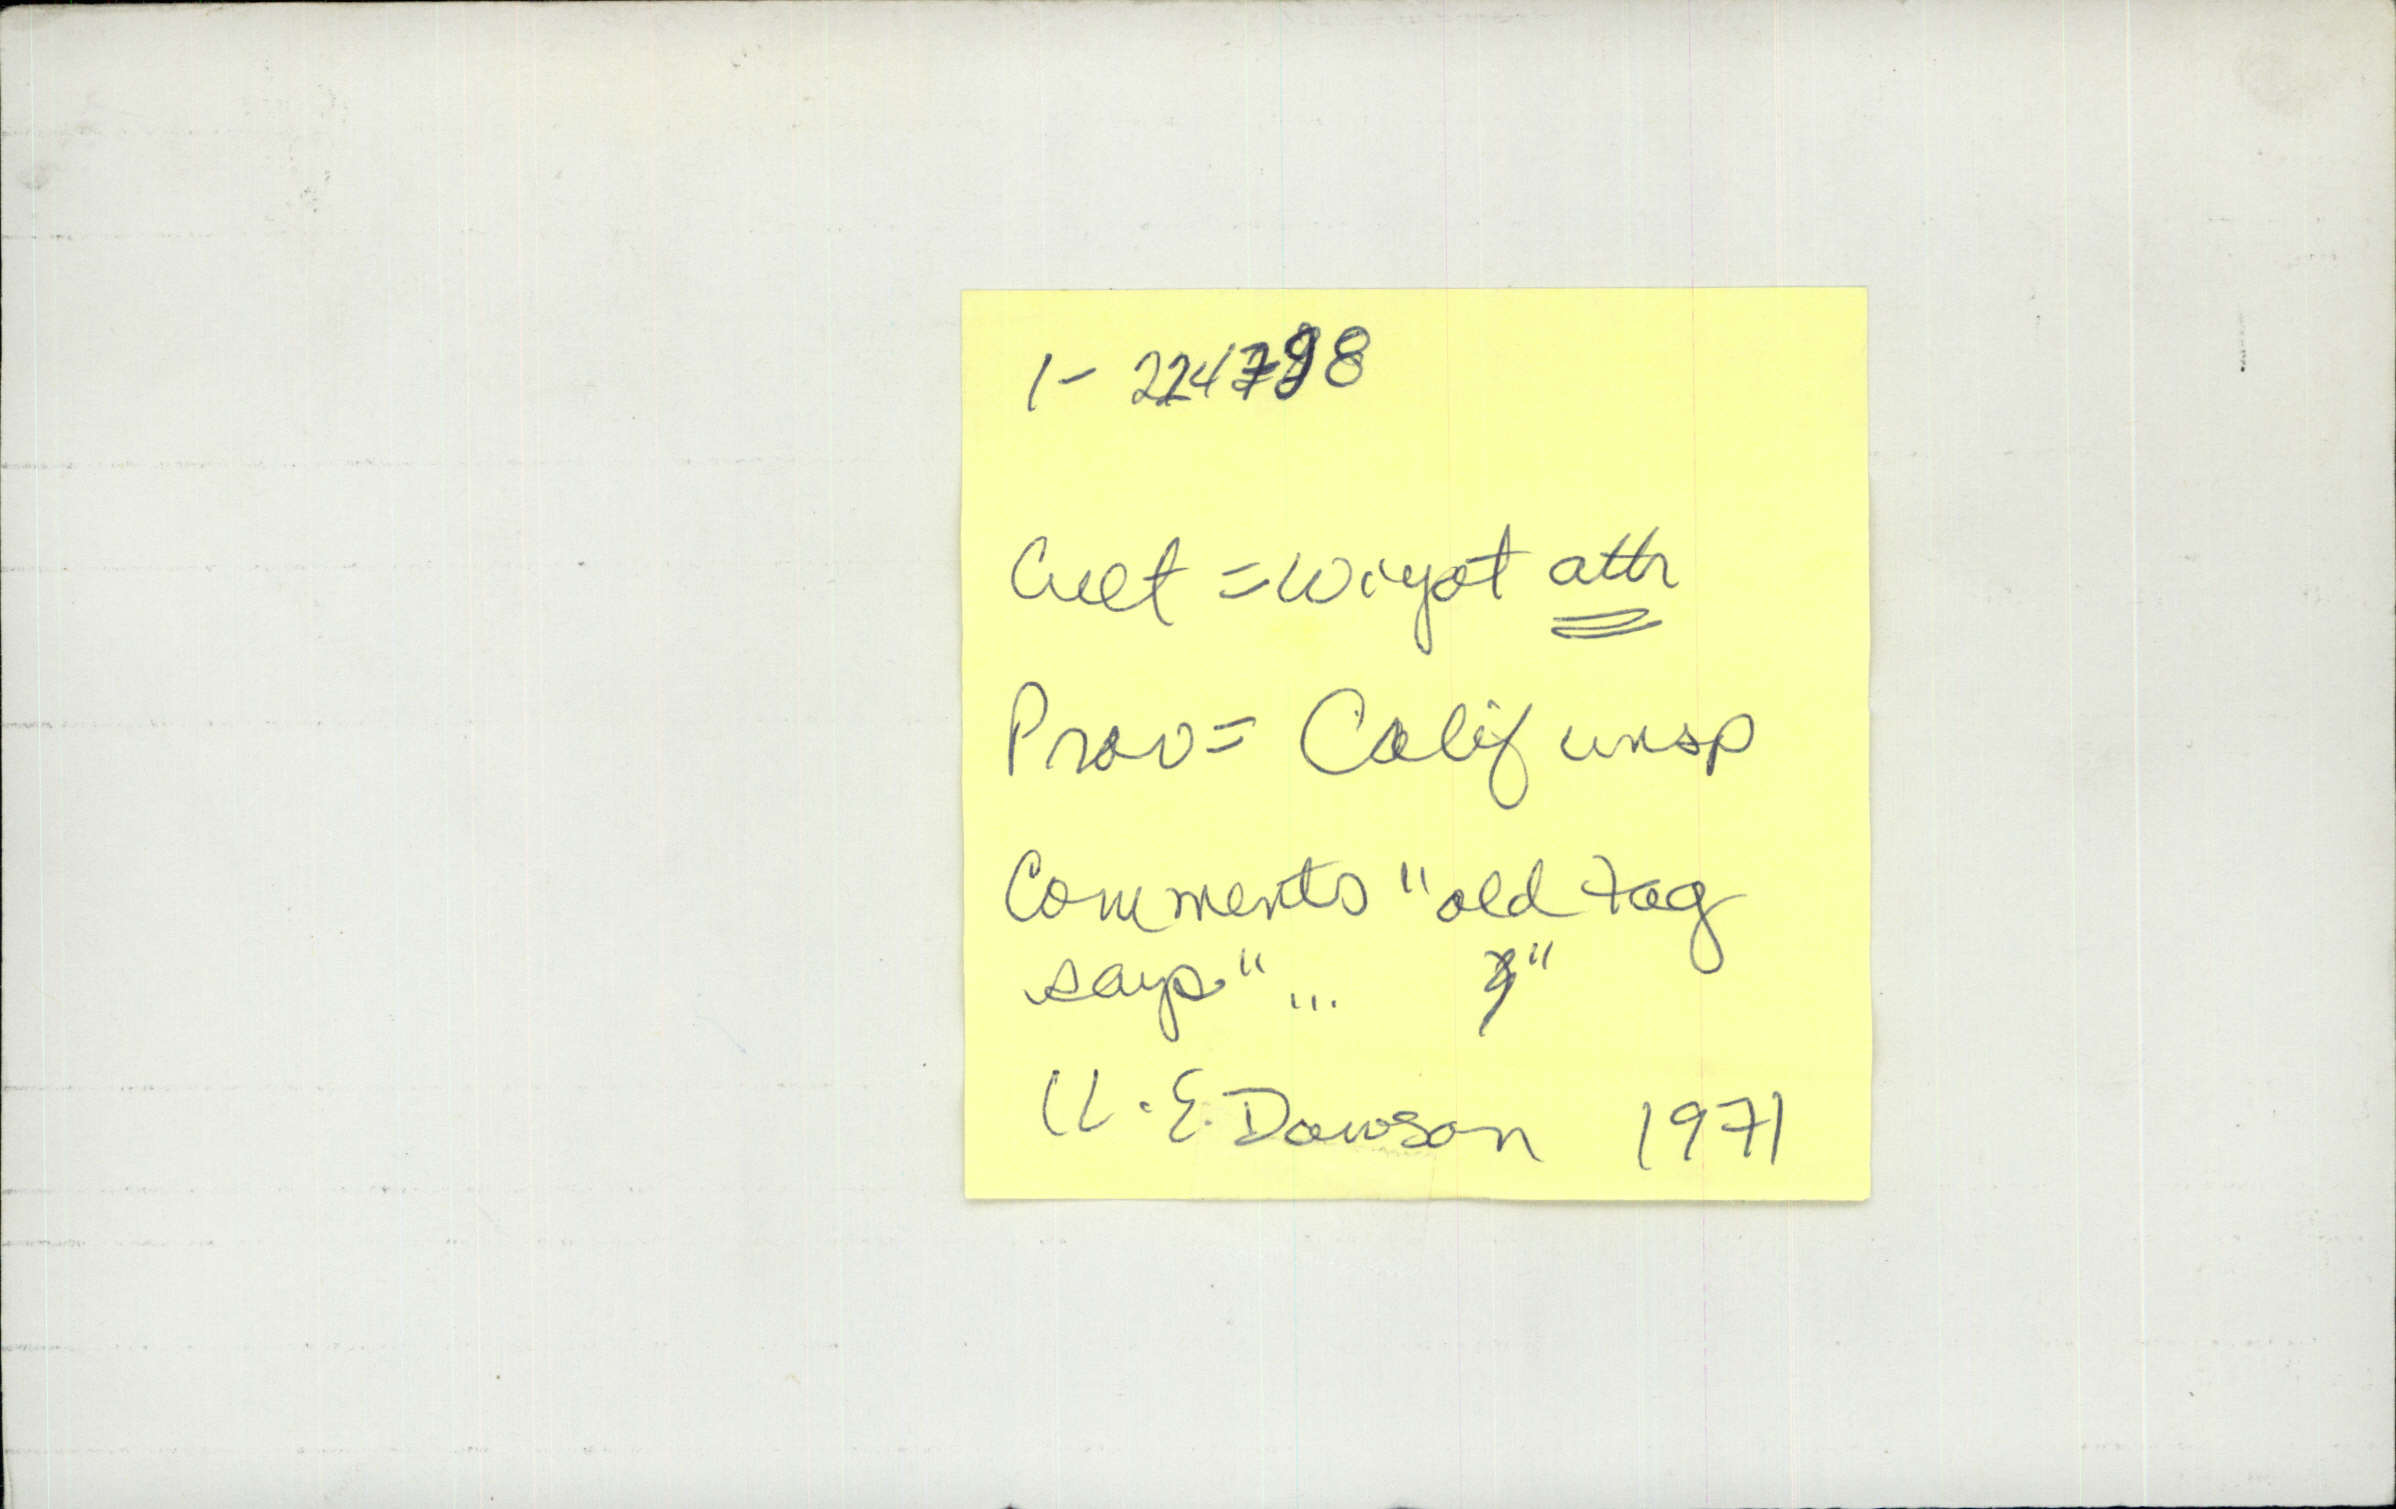 Cult = Wiyot attr
Prov = Calif unsp
Comments "old tag
says" ... "
L. E. Dawson 1971